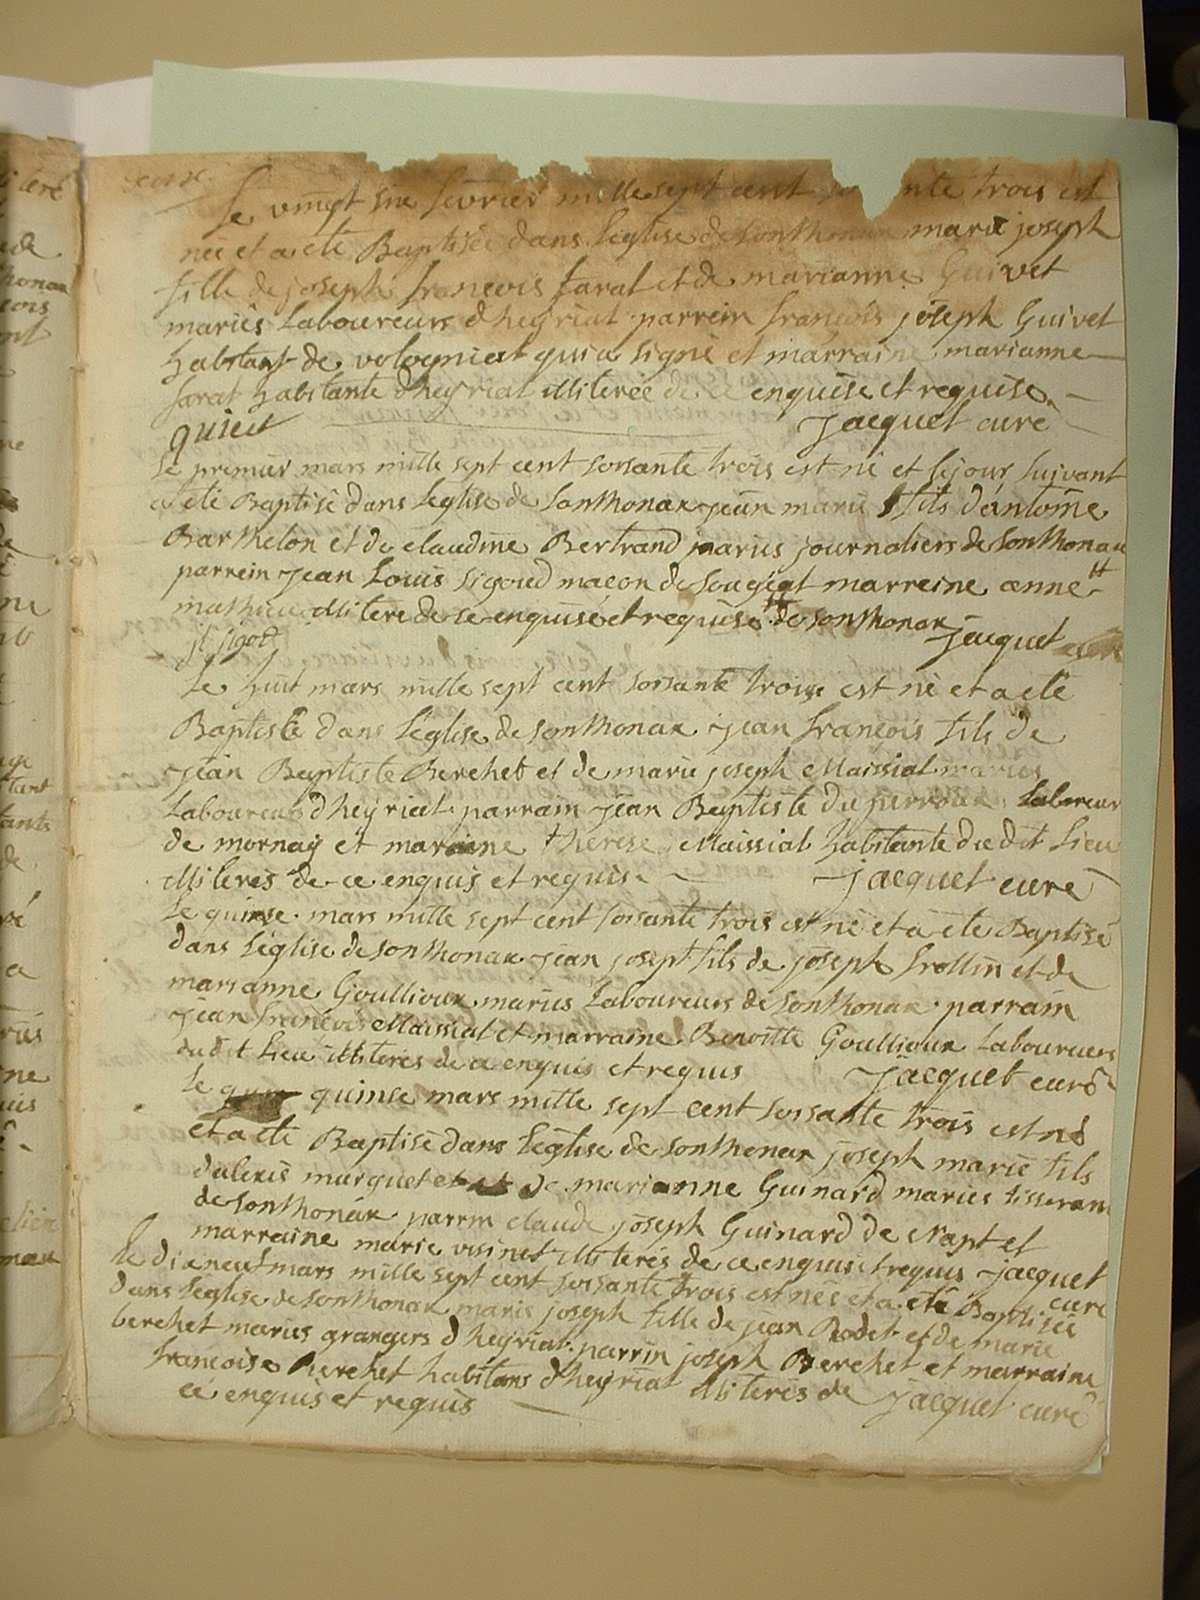 Le vingt six fevrier mille sept cent soi nte trois est
neè et a etè Baptisèe dans l'eglise de sonthonax marie joseph
fille de joseph françois farat et de marianne Guivet
mariès Laboureurs d'heyriat parrein françois joseph Guivet
habitant de volognat qui a signè et marraine marianne
farat habitante d'heyriat illiterèe de ce enquise et requise
Jacquet curè
Le premier mars mille sept cent soisante trois est nè et le jour suivant
a etè Baptisè dans l'eglise de sonthonax jean marie fils d'antoine
Barthelon et de claudine Bertrand mariès journaliers de sonthonax
parrein jean Louis sigoud maçon de sougeat marreine anne
mathieu illiterè de ce enquise et requise de sonthonax
jl sigod Jacquet curè
Le huit mars mille sept cent soisante trois est nè et a etè
Baptisè dans l'eglise de sonthonax jean françois fils de
jean Baptiste Berchet et de marie joseph Maissiat mariès
Laboureurs d'heyriat parrain jean Baptiste dujurroux Laboreur
de mornay et maraine therese Maissiat habitante du dit Lieu
illiterès de ce enquis et requis Jacquet curè
Le quinse mars mille sept cent soisante trois est nè et a ètè Baptisè
dans l'eglise de sonthonax jean joseph fils de joseph frollin et de
marianne Goullioux mariès Laboureurs de sonthonax parrain
jean françois Maissiat et marraine Benoitte Goullioux Laboureurs
du dit Lieu illiterès de ce enquis et requis Jacquet curè
Le quinse mars mille sept cent soisante trois est nè
et a etè Baptisè dans l'eglise de sonthonax joseph marie fils
d'alexis murguet et de marianne Guinard mariès tisseran
de sonthonax parrin claude joseph Guinard de Napt et
marraine marie visinet illiterès de ce enquis et requis Jacquet
curè
Le dixneuf mars mille sept cent soisante trois est nèe et a etè Baptisèe
dans l'eglise de sonthonax marie joseph fille de jean Rodet et de marie
berchet mariès grangers d'heyriat parrin joseph Berchet et marraine
françoise Berchet habitans d'heyriat illiterès de
ce enquis et requis Jacquet curè